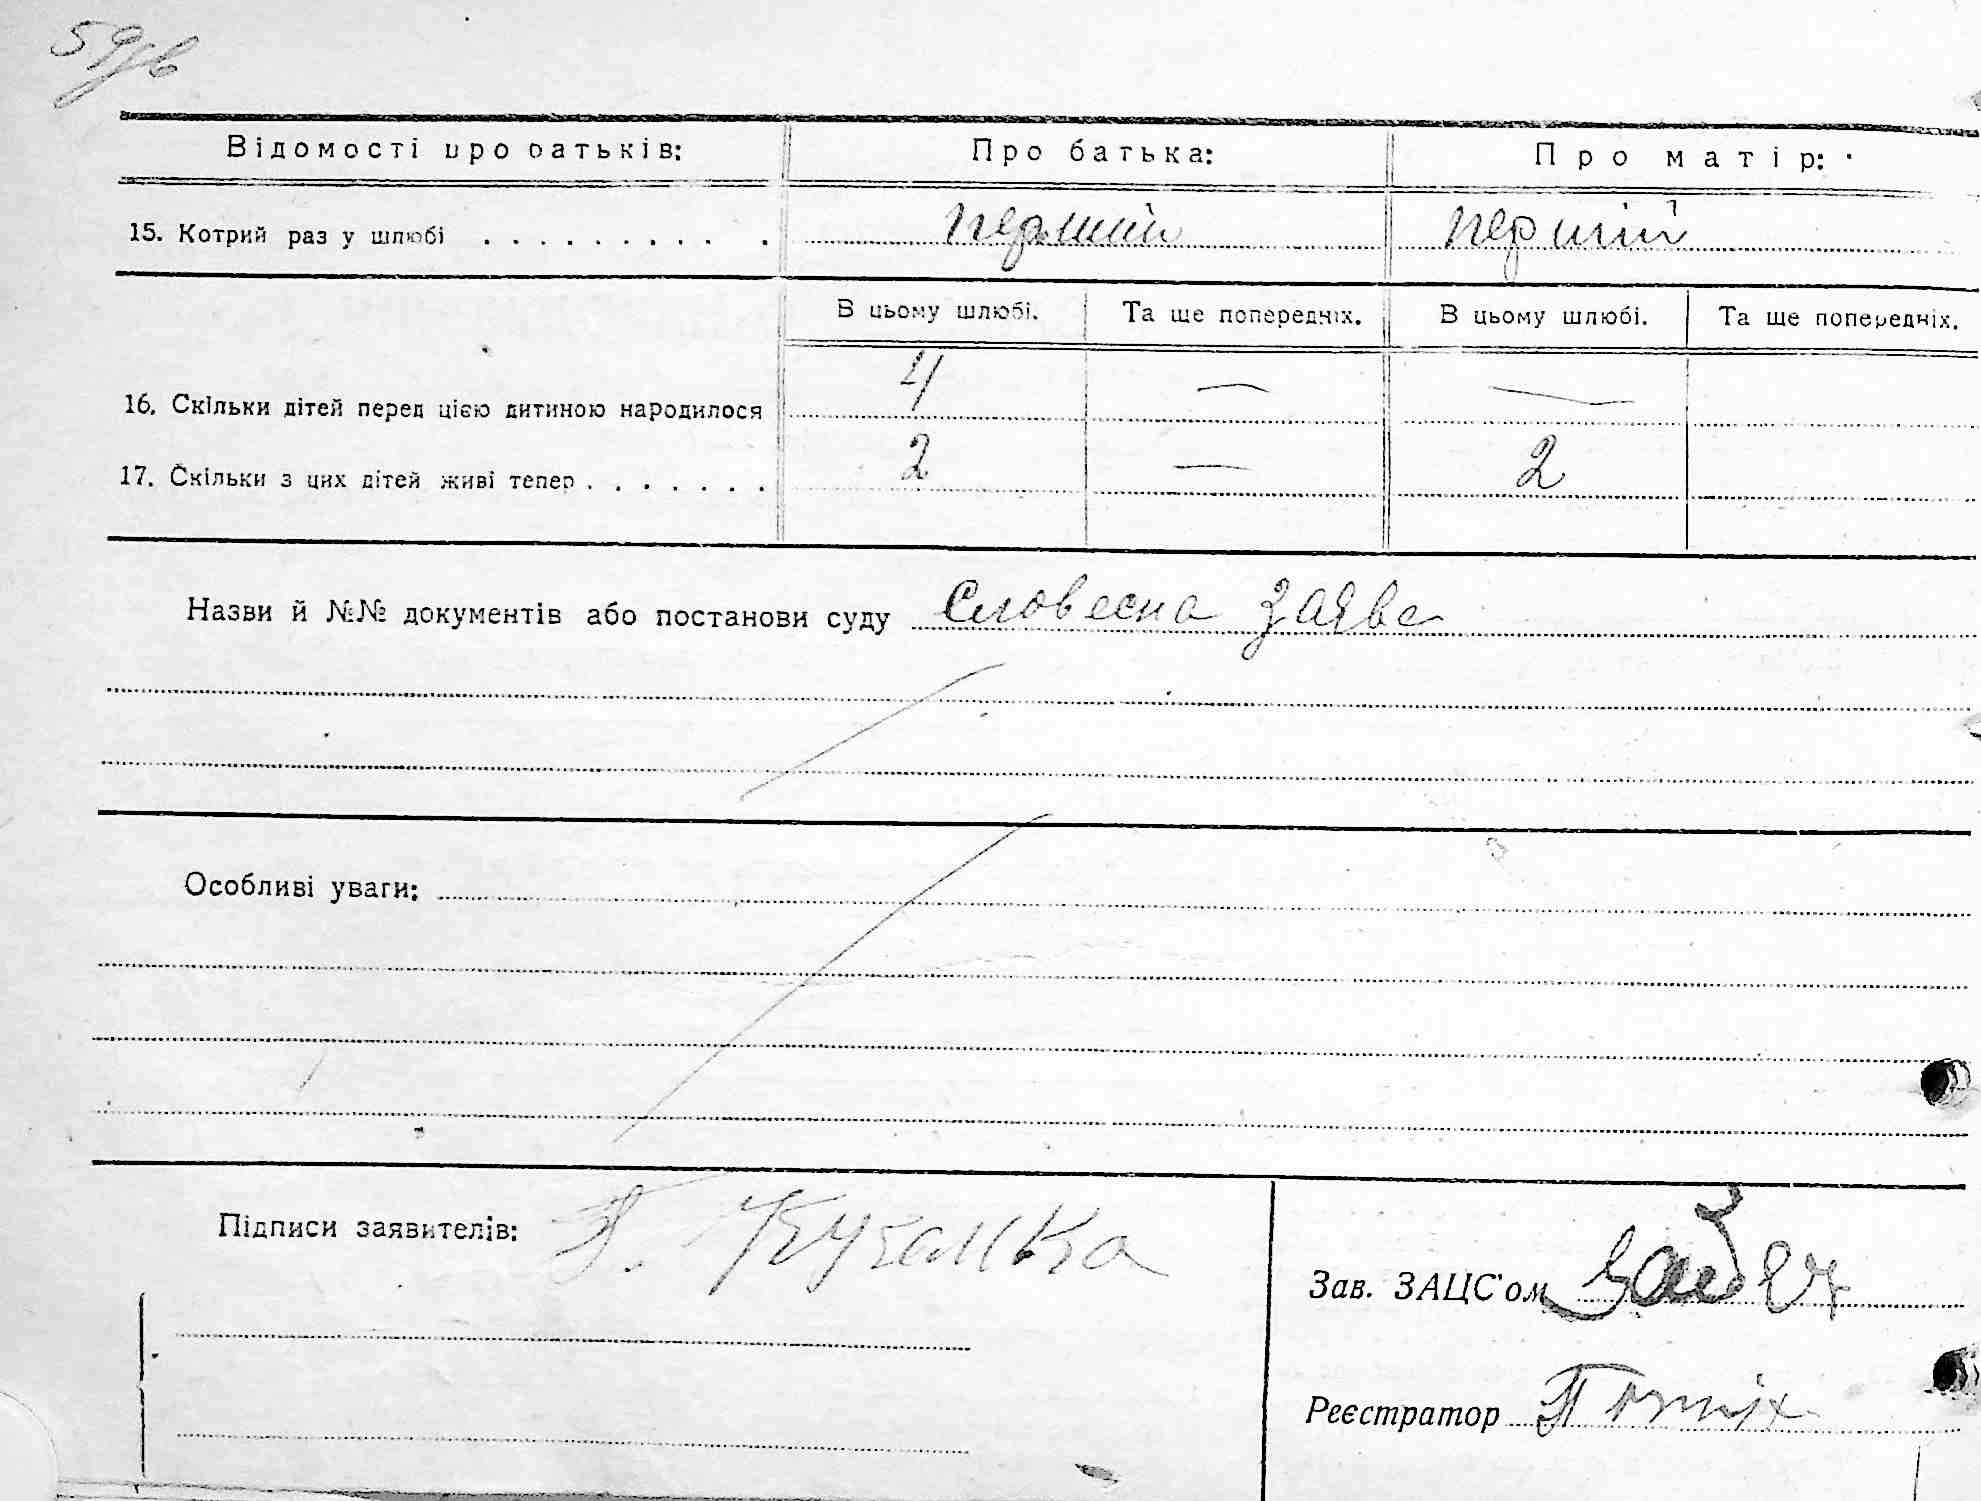 59зв
Відомості про батьків: Про батька: Про матір:
15. Котрий раз у шлюбі . . . . . . . . . . перший перший
В цьому шлюбі. Та ще попередніх. В цьому шлюбі. Та ще попередніх.
16. Скільки дітей перед цією дитиною народилося 4 — —
17. Скільки з цих дітей живі тепер . . . . . . . 2 — 2
Назви й №№ документів або постанови суду Словесна заява
Особливі уваги:
Підписи заявителів:
Зав. ЗАЦС'ом
Реєстратор